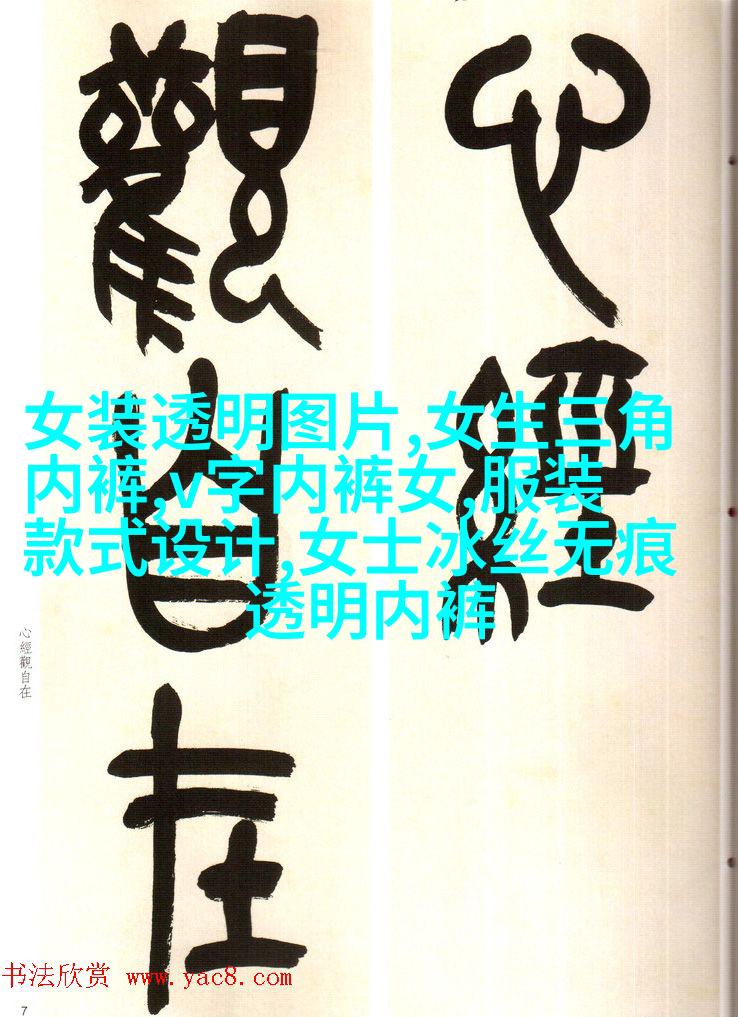 心經
觀自在
女装透明图片,女生三角
内裤,v字内裤女,服装
款式设计,女士冰丝无痕
透明内裤
心經觀自在
书法欣赏 www.yac8.com
7